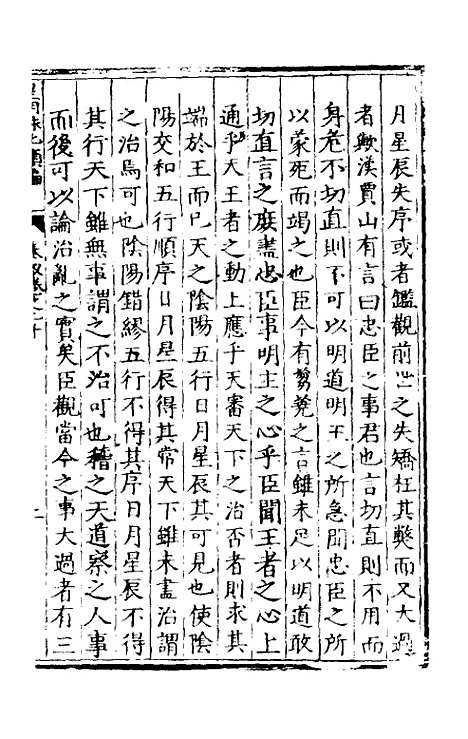 月星辰失序或者鑑觀前世之失矯枉其獘而又大過
者歟漢賈山有言曰忠臣之事君也言切直則不用而
身危不切直則不可以明道明王之所急聞忠臣之所
以蒙死而竭之也臣今有芻蕘之言雖未足以明道敢
切直言之庶盡忠臣事明主之心乎臣聞王者之心上
通乎天王者之動上應乎天審天下之治否者則求其
端於王而已天之陰陽五行日月星辰其可見也使陰
陽交和五行順序日月星辰得其常天下雖未盡治謂
之治焉可也陰陽錯繆五行不得其序日月星辰不得
其行天下雖無事謂之不治可也稽之天道察之人事
而後可以論治亂之實矣臣觀當今之事大過者有三